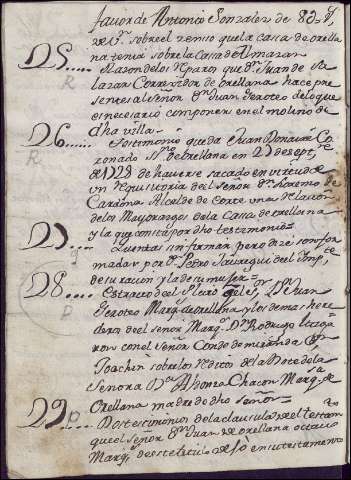 favor de Antonio Gonzalez de 80 
sobre el censo que la casa de orella
na tenia sobre la Casa de Almaraz
25.... Razon de los Reparos que Dn. Juan de Sa
lazar Correxidor de orellana hace pre
sentes al Señor Dn. Juan Geroteo de lo que
es necesario componer en el molino de
dha villa
26.... Testimonio que da Juan Donaire Co
ronado ssno de orellana en 21 de septre
de 1728 de haverse sacado en virtud de
un Requisitoria del Señor Dn. Lorenzo de
Cardona Alcalde de Corte una
de los Mayorazgos de la Casa de orellana
y la que consta por dho testimonio
27.... Quentas sin firmar pero dize son for
madas por Dn. Pedro Jauregui del
de su razon y la de su muger
28.... Extracto del Pleito que el sr. Dn. Juan
Geroteo Marqs. de orellana y los demas here
deros del señor Marqs. Dn. Rodrigo litiga
ron con el señor Conde de miranda Dn.
Joachin sobre los Reditos de la Dote de la
Señora Da. Aldonza Chacon Marqsa. de
Orellana madre de dho señor
29.... Dos testimonios de la clausula del testamto
que el Señor Dn. Juan de orellana octavo
Marqs. de este titulo en su testamento